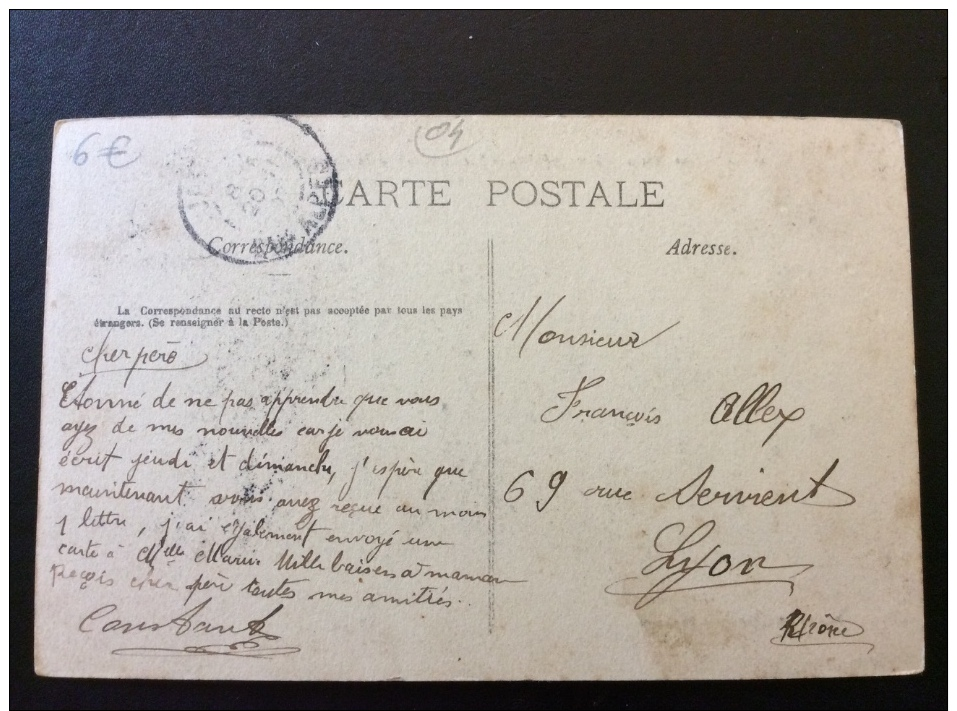 6€
04
CARTE POSTALE
Correspondance.
Adresse.
La Correspondance au recto n'est pas acceptée par tous les pays
étrangers. (Se renseigner à la Poste.)
Cher père
Etonné de ne pas apprendre que vous
ayez de mes nouvelles car je vous ai
écrit jeudi et dimanche, j'espère que
maintenant vous avez reçue au moins
1 lettre, j'ai également envoyé une
carte à Mlle Marie Mille baisers à maman
Reçois cher père toutes mes amitiés..
Constant
Monsieur
François Allex
69 rue Servient
Lyon
Rhône
ALPES